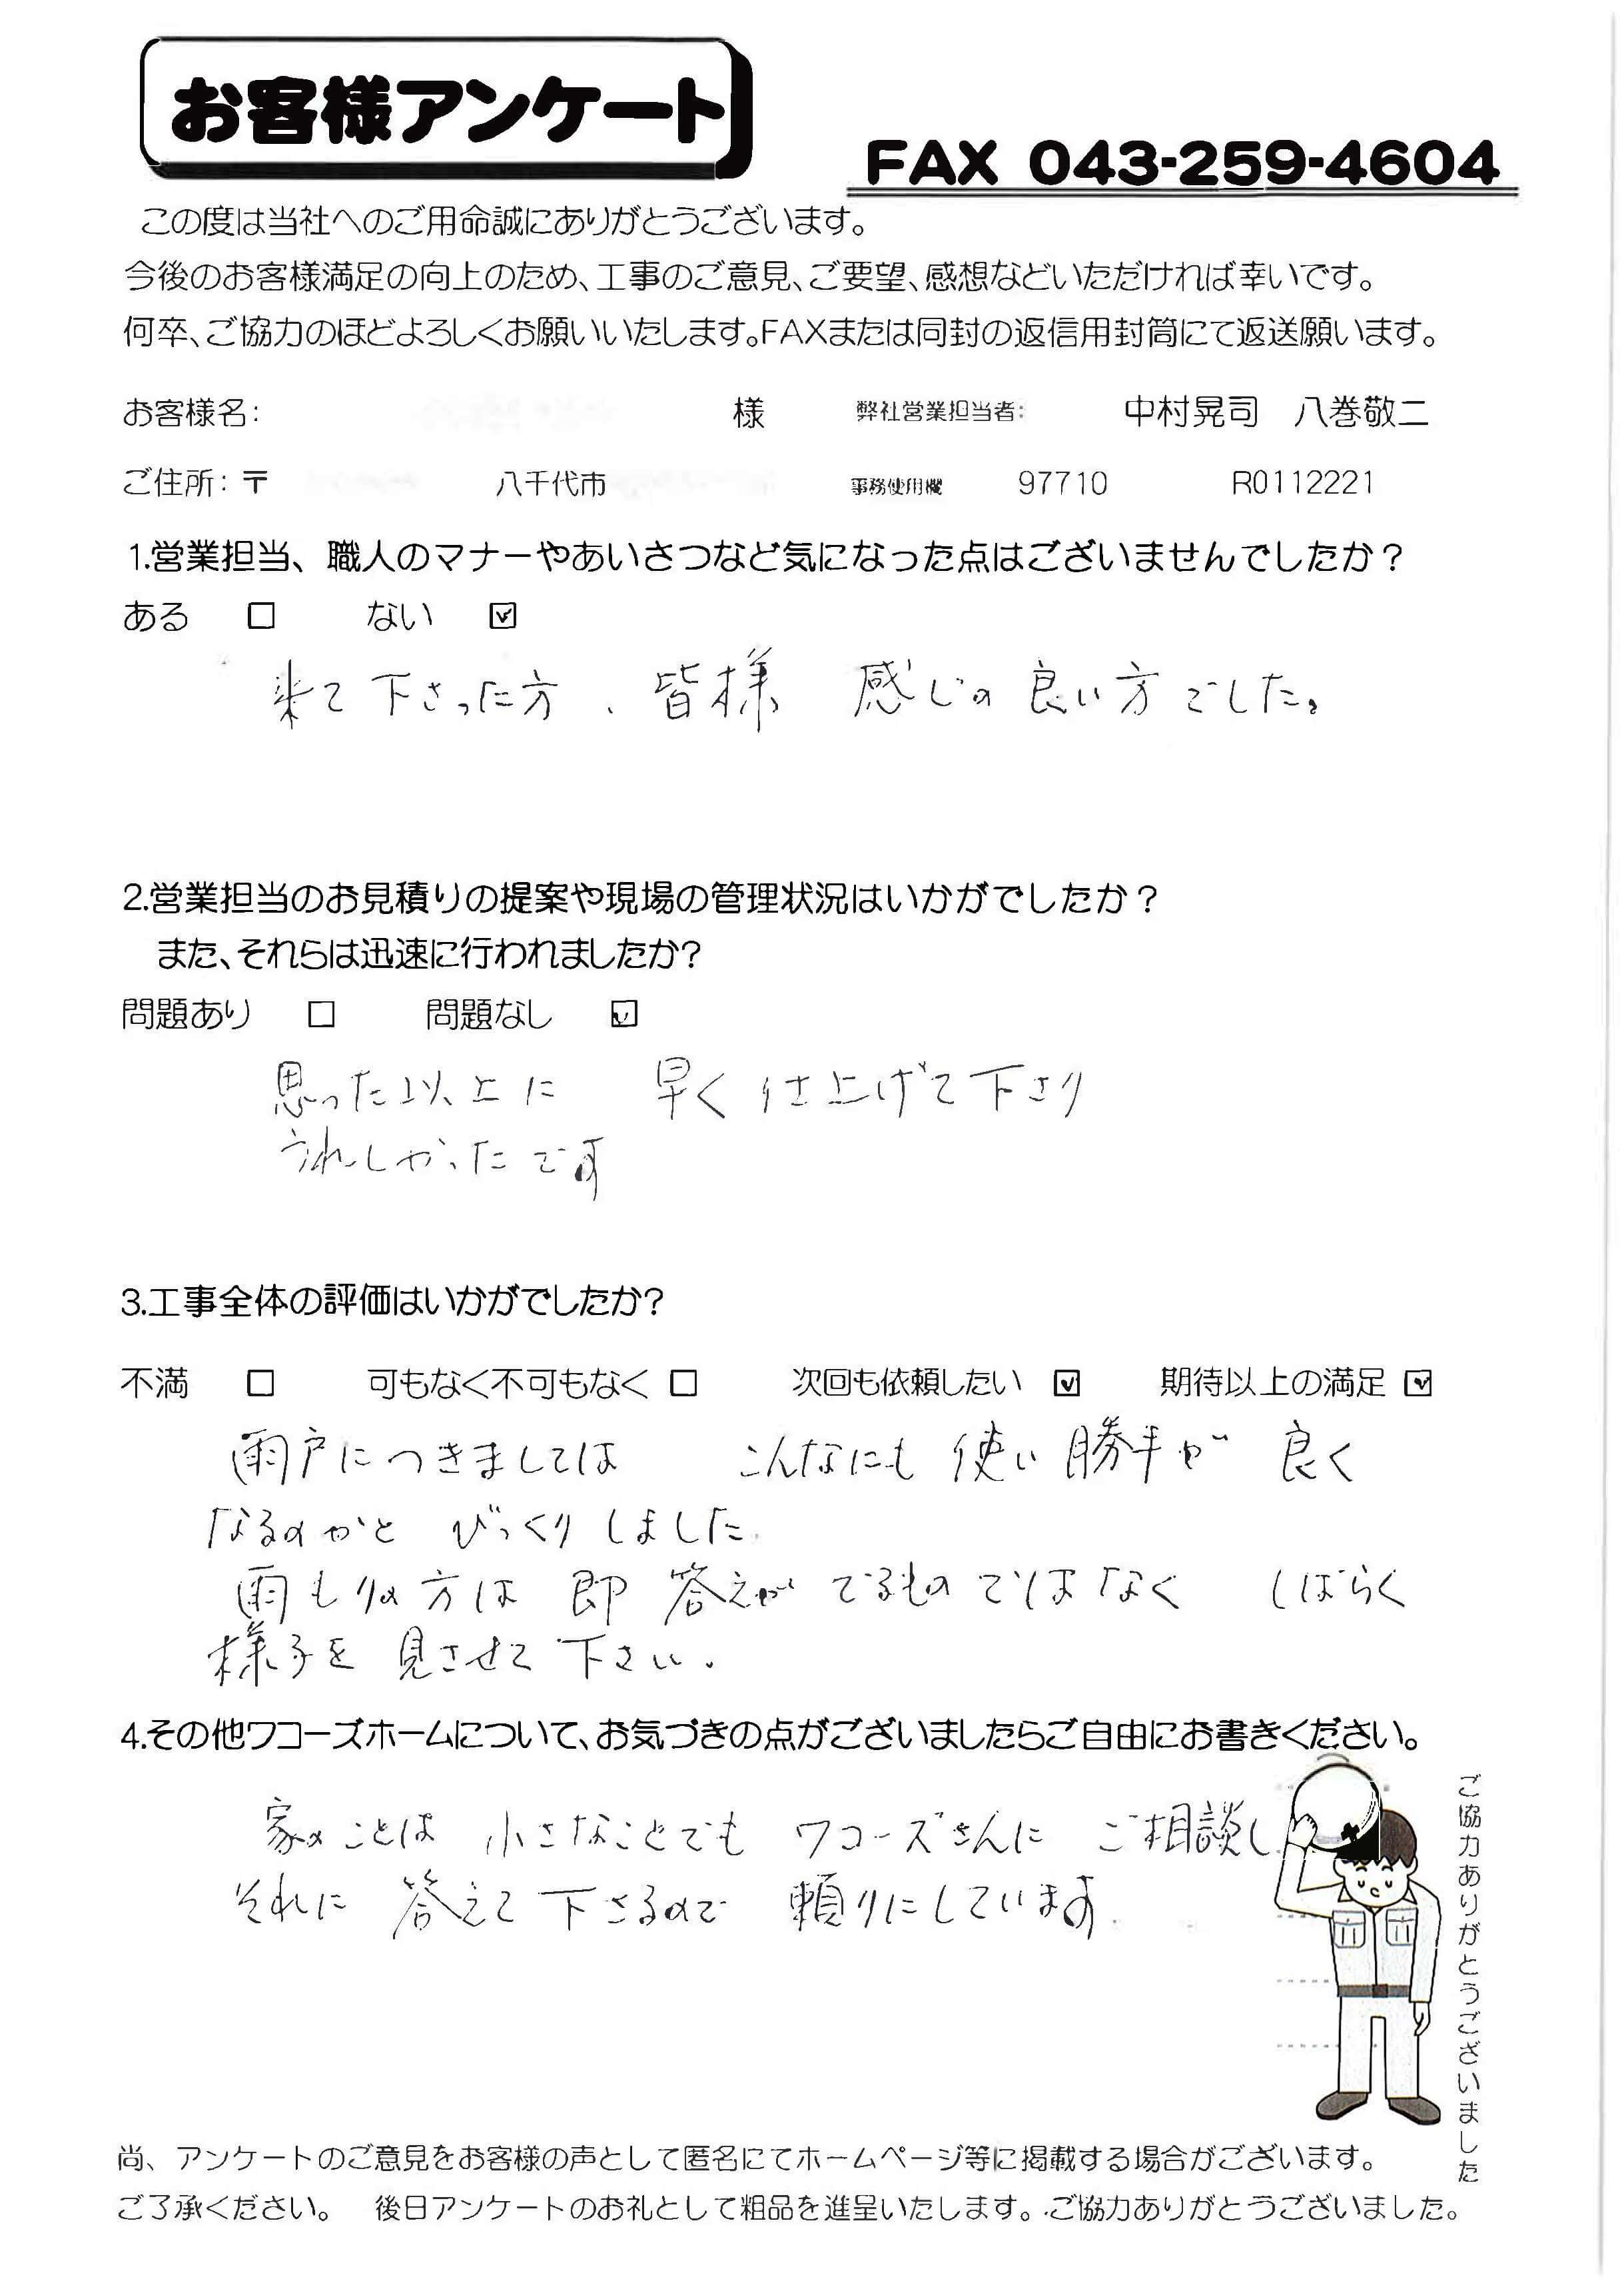 お客様アンケート
FAX 043-259-4604
この度は当社へのご用命誠にありがとうございます。
今後のお客様満足の向上のため、工事のご意見、ご要望、感想などいただければ幸いです。
何卒、ご協力のほどよろしくお願いいたします。FAXまたは同封の返信用封筒にて返送願います。
お客様名: 様 弊社営業担当者: 中村晃司 八巻敬二
ご住所: 〒 八千代市 事務使用欄 97710 R0112221
1.営業担当、職人のマナーやあいさつなど気になった点はございませんでしたか?
ある □ ない ☑
来て下さった方、皆様 感じの良い方でした。
2.営業担当のお見積りの提案や現場の管理状況はいかがでしたか?
また、それらは迅速に行われましたか?
問題あり □ 問題なし ☑
思った以上に 早く仕上げて下さり
うれしかったです
3.工事全体の評価はいかがでしたか?
不満 □ 可もなく不可もなく □ 次回も依頼したい ☑ 期待以上の満足 ☑
雨戸につきましては こんなにも使い勝手が良く
なるのかと びっくりしました
雨もりの方は 即 答えが でるものではなく しばらく
様子を見させて下さい。
4.その他ワコーズホームについて、お気づきの点がございましたらご自由にお書きください。
家のことは 小さなことでも ワコーズさんに ご相談し
それに 答えて下さるので 頼りにしています。
ご協力ありがとうございました
尚、アンケートのご意見をお客様の声として匿名にてホームページ等に掲載する場合がございます。
ご了承ください。 後日アンケートのお礼として粗品を進呈いたします。ご協力ありがとうございました。